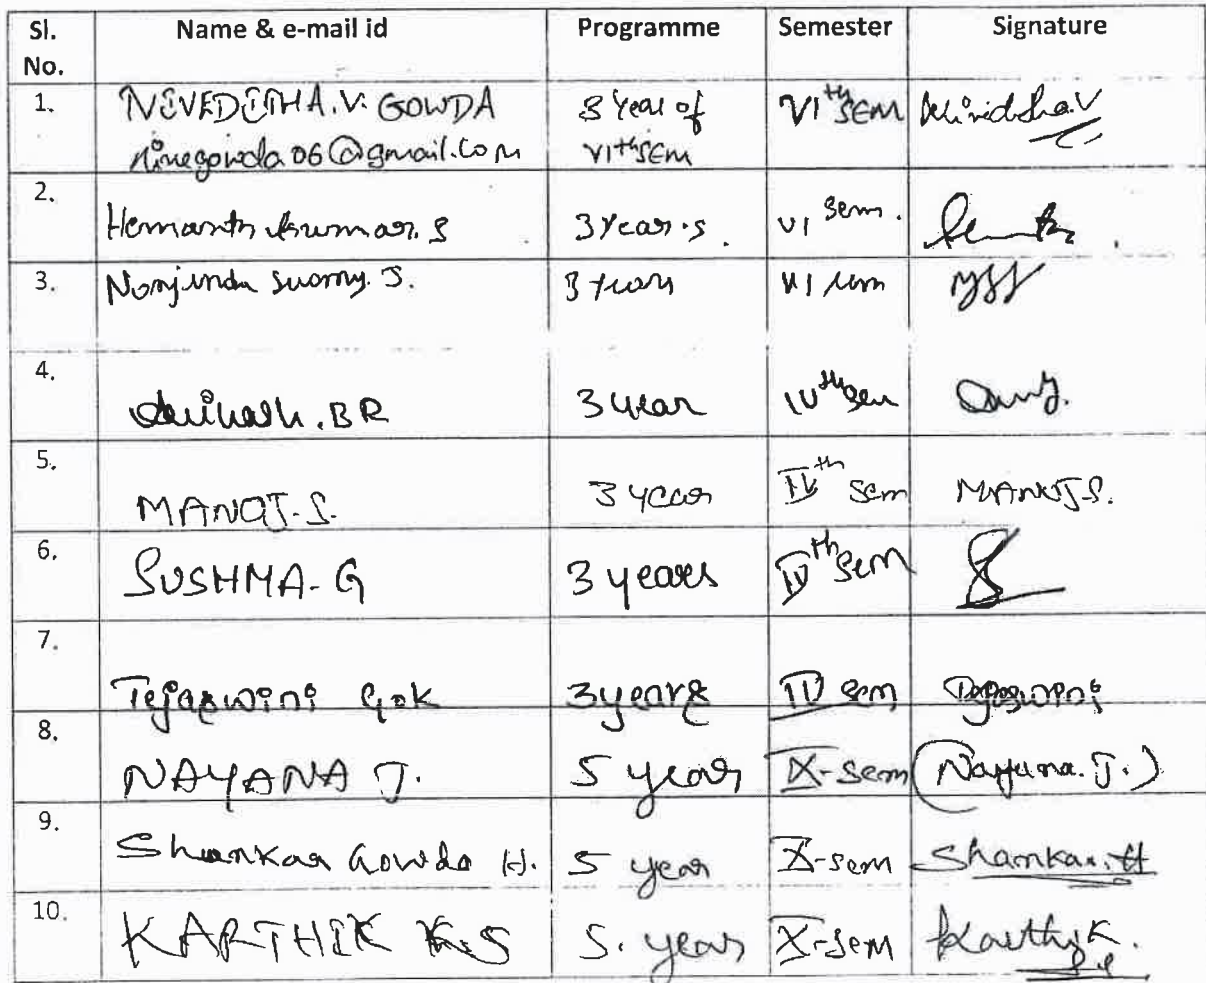 Sl. No. Name & e-mail id Programme Semester Signature
1. NIVEDITHA.V. GOWDA 3 Year of VIth SEM VIth SEM
ninegowda06@gmail.com
2. Hemanth kumar. S 3 Year.s. VI sem.
3. Nanjunda Swamy. J. 3 Years VI sem
4. BR 3 year IVth sem
5. MANOJ. S. 3 year IVth sem MANOJ S.
6. SUSHMA. G 3 years IVth sem
7. Tejaswini G.K 3 years IV sem Tejaswini
8. NAYANA J. 5 year X-sem (Nayana. J.)
9. Shankar Gowda H. 5 year X-sem Shankar. H
10. KARTHIK K.S 5. year X-sem Karthik.